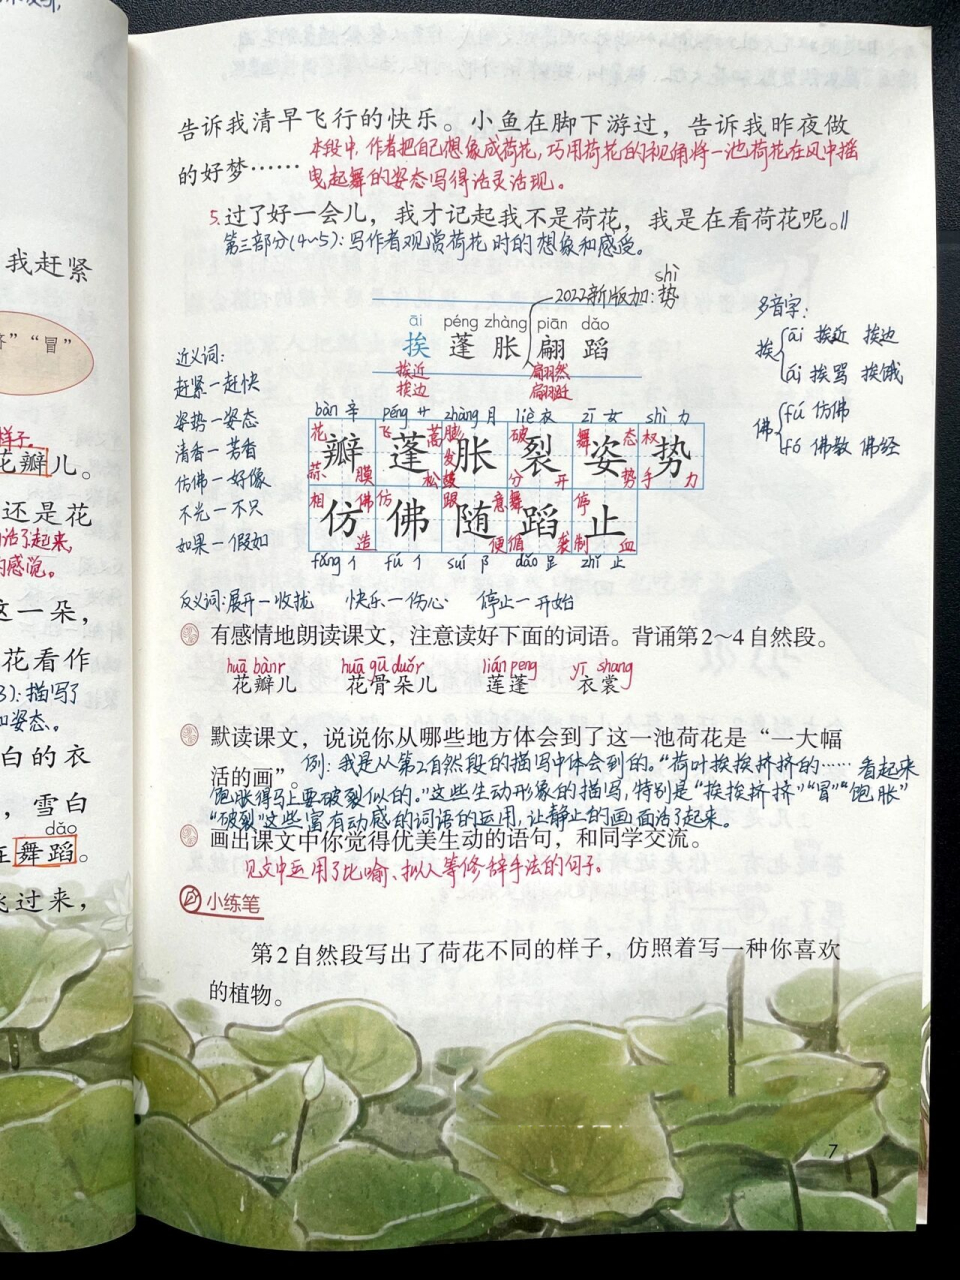 我赶紧
” “冒”
花瓣儿。
还是花
这一朵，
花看作
描写了
和姿态。
白的衣
，雪白
dǎo
在舞蹈。
飞过来，
告诉我清早飞行的快乐。小鱼在脚下游过，告诉我昨夜做
的好梦……
本段中，作者把自己想像成荷花，巧用荷花的视角将一池荷花在风中摇
曳起舞的姿态写得活灵活现。
5.过了好一会儿，我才记起我不是荷花，我是在看荷花呢。//
第三部分(4~5)：写作者观赏荷花时的想象和感受。
shì
2022新版加：势
āi péng zhàng piān dǎo
挨 蓬 胀 翩 蹈
挨近 翩翩然
挨边 翩翩跹
近义词：
赶紧—赶快
姿势—姿态
清香—芳香
仿佛—好像
不光—不只
如果—假如
多音字：
挨 āi 挨近 挨边
ái 挨骂 挨饿
佛 fú 仿佛
fó 佛教 佛经
bàn 辛 péng 艹 zhàng 月 liè 衣 zī 女 shì 力
瓣 蓬 胀 裂 姿 势
仿 佛 随 蹈 止
fǎng 亻 fú 亻 suí 阝 dǎo 足 zhǐ 止
反义词：展开—收拢 快乐—伤心 停止—开始
有感情地朗读课文，注意读好下面的词语。背诵第2~4自然段。
huā bànr huā gū duǒr lián peng yī shang
花瓣儿 花骨朵儿 莲蓬 衣裳
默读课文，说说你从哪些地方体会到了这一池荷花是“一大幅
活的画”。
例：我是从第2自然段的描写中体会到的。“荷叶挨挨挤挤的……看起来
饱胀得马上要破裂似的。”这些生动形象的描写，特别是“挨挨挤挤”“冒”“饱胀”
“破裂”这些富有动感的词语的运用，让静止的画面活了起来。
画出课文中你觉得优美生动的语句，和同学交流。
见文中运用了比喻、拟人等修辞手法的句子。
小练笔
第2自然段写出了荷花不同的样子，仿照着写一种你喜欢
的植物。
7